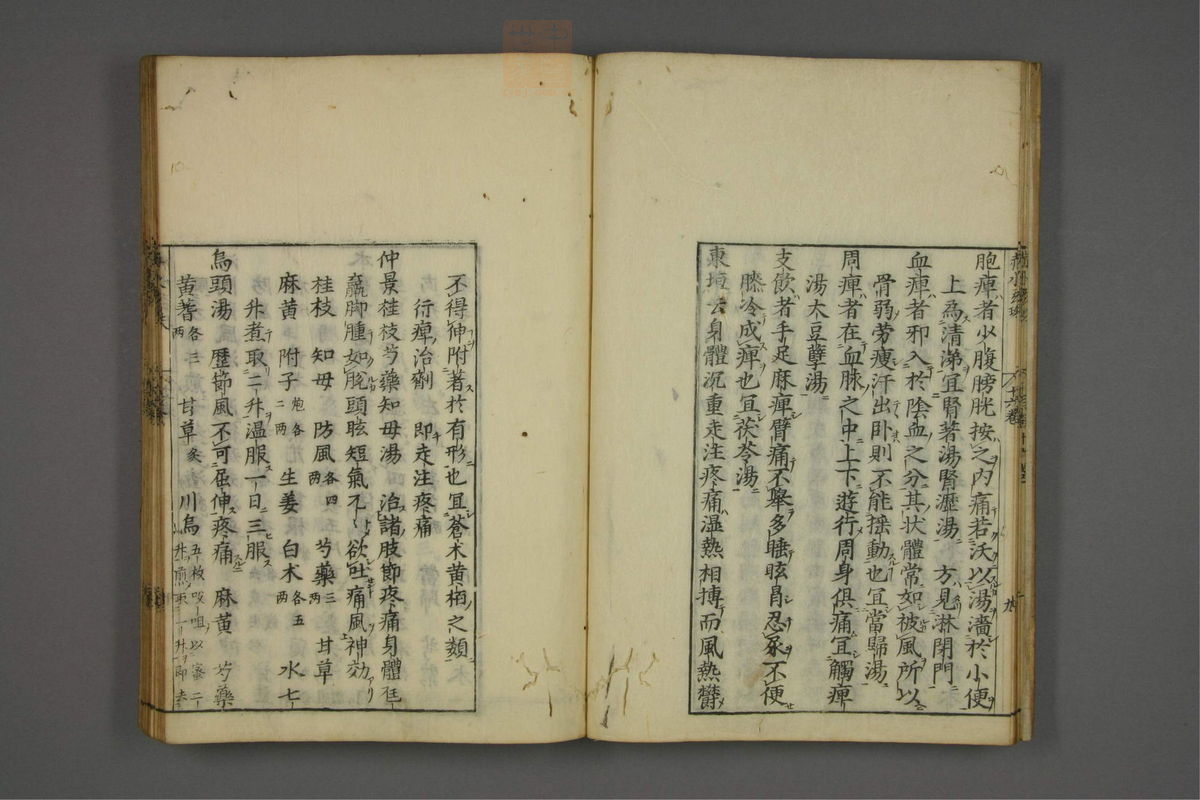 胞痺者少腹膀胱按之内痛若沃以湯濇於小便
上為清涕宜腎著湯腎瀝湯方見淋閉門
血痺者邪入於陰血之分其状體常如被風所以
骨弱劳瘦汗出卧則不能揺動也宜當歸湯
周痺者在血脉之中上下遊行周身俱痛宜觸痺
湯大豆蘗湯
支飲者手足麻痺臂痛不擧多睡眩冒忍尿不便
膝冷成痺也宜茯苓湯
東垣云身體沉重走注疼痛温熱相搏而風熱欝
不得伸附著於有形也宜蒼术黄栢之類
行痺治劑 即走注疼痛
仲景桂枝芍藥知母湯 治諸肢節疼痛身體尫
羸脚腫如脱頭眩短氣兀〻欲吐痛風神効
桂枝 知母 防風各四两 芍藥三两 甘草
麻黄 附子炮各二两 生姜 白术各五两 水七
升煮取二升温服一日三服
烏頭湯 歴節風不可屈伸疼痛 麻黄 芍藥
黄耆各三两 甘草炙 川烏五枚㕮咀以蜜二升煎取一升即去
十六卷